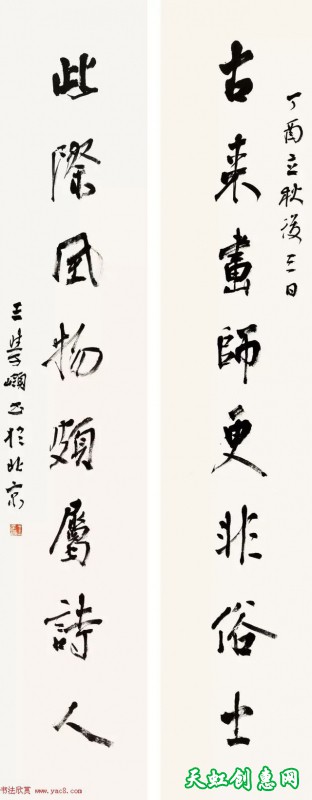 丁酉立秋後三日
古来畫師更非俗士
此際風物頗屬詩人
王學嶺書於北京
书法欣赏 www.yac8.com
天虹创惠网